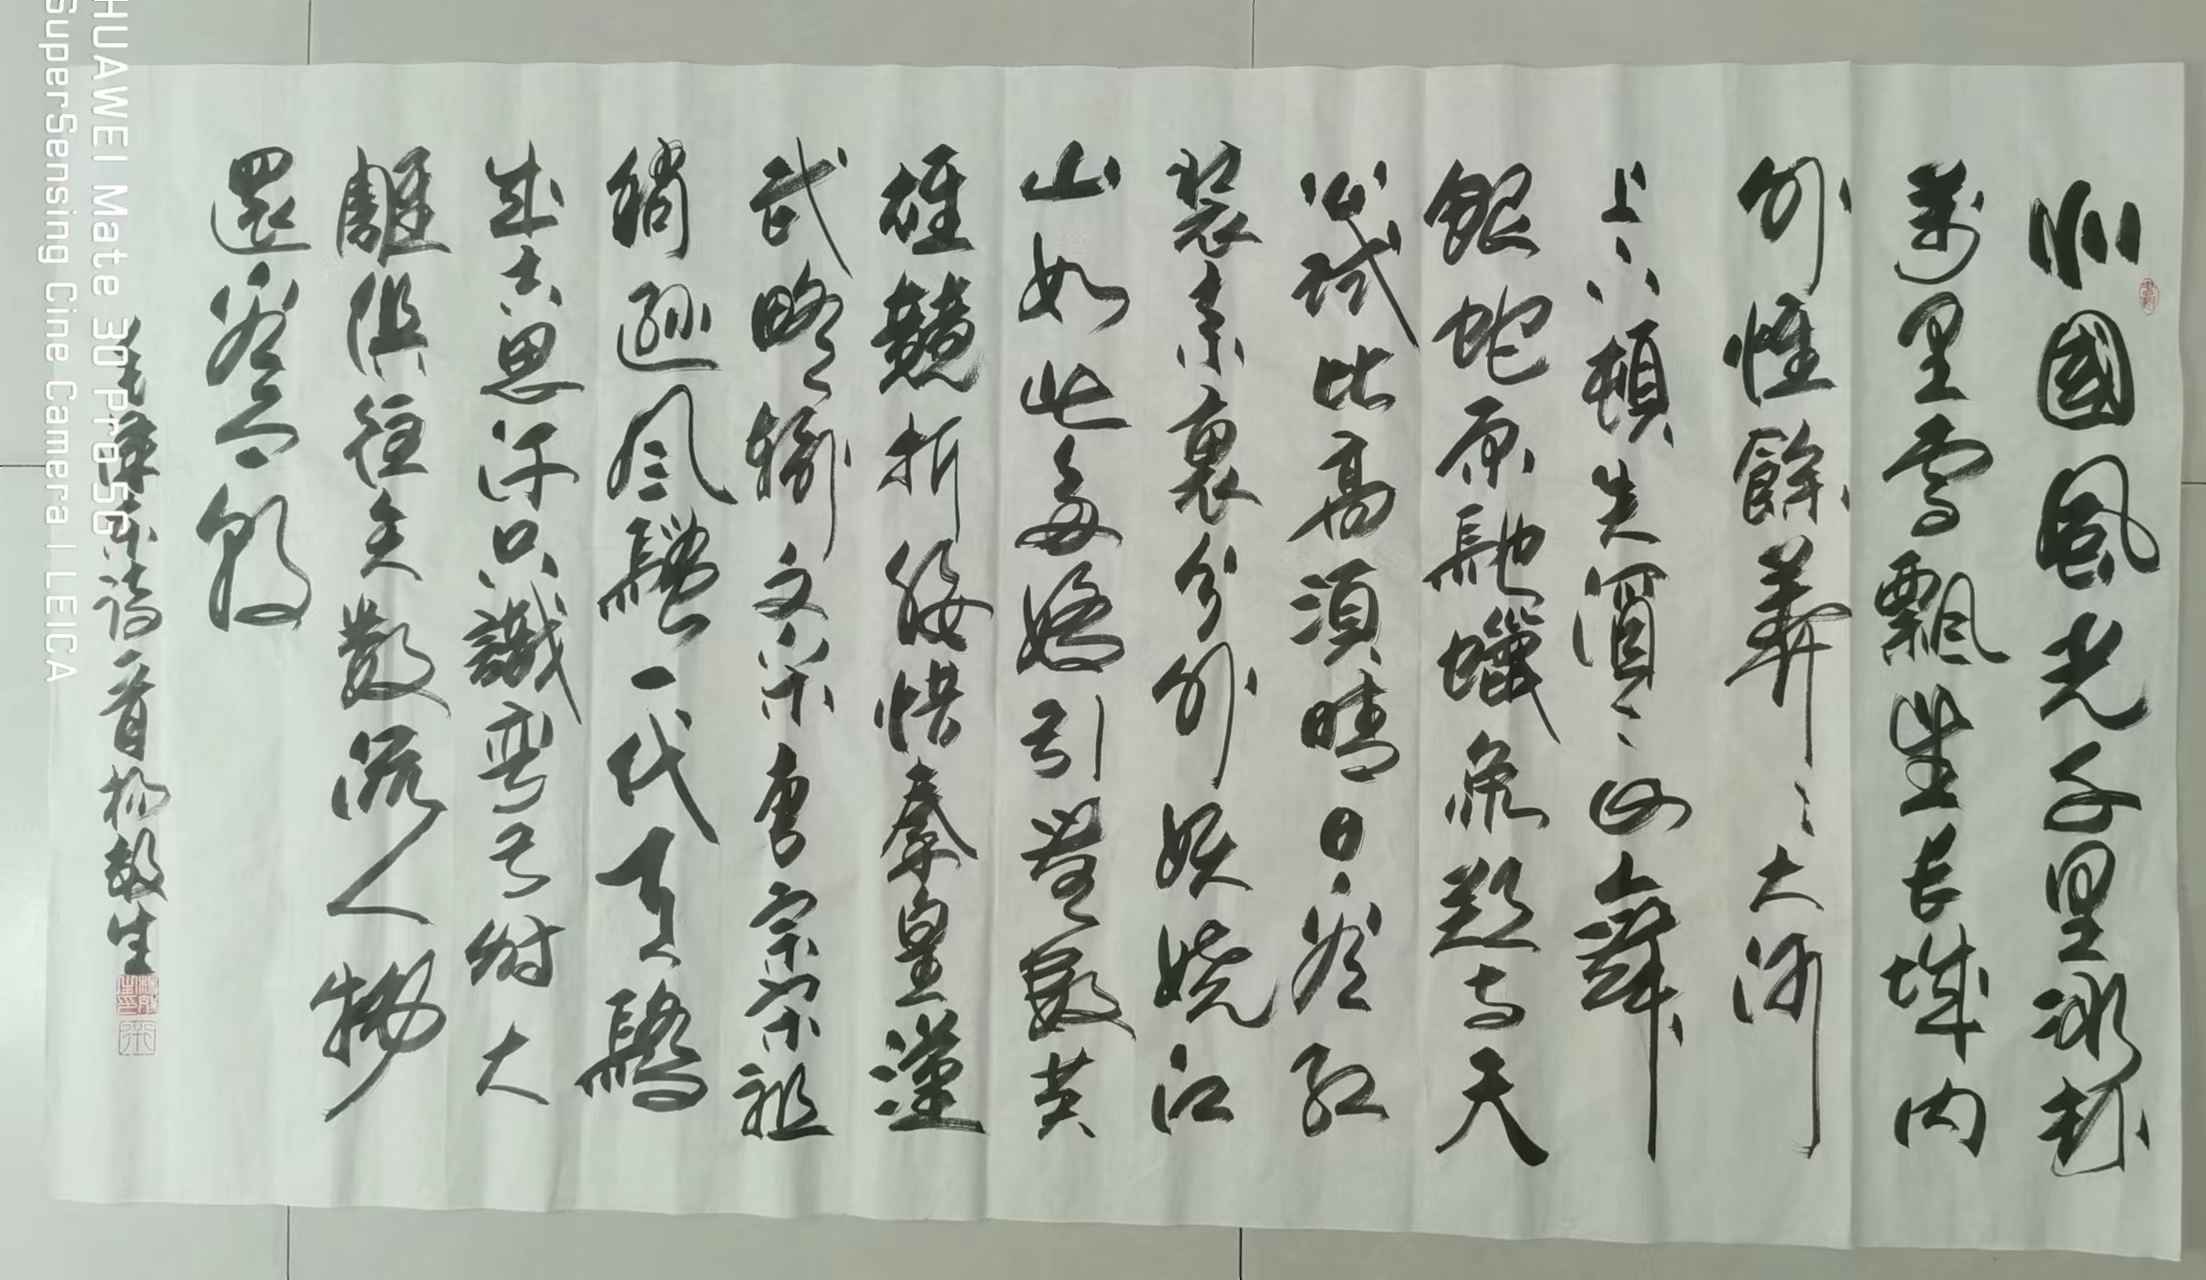 北國風光千里冰封
萬里雪飄望長城內
外惟餘莽〻大河
上下頓失滔〻山舞
銀蛇原馳蠟象欲与天
公試比高須晴日看紅
裝素裹分外妖嬈江
山如此多嬌引無數英
雄競折腰惜秦皇漢
武略輸文采唐宗宋祖
稍遜風騷一代天驕
成吉思汗只識彎弓射大
雕俱往矣數流人物
還看今朝
毛澤東詩一首楊敬生
HUAWEI Mate 30 Pro 5G
SuperSensing Cine Camera | LEICA